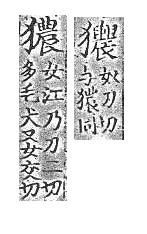 奴刀切
与㺜同
㺜
女江乃刀二切
多毛犬又女交切